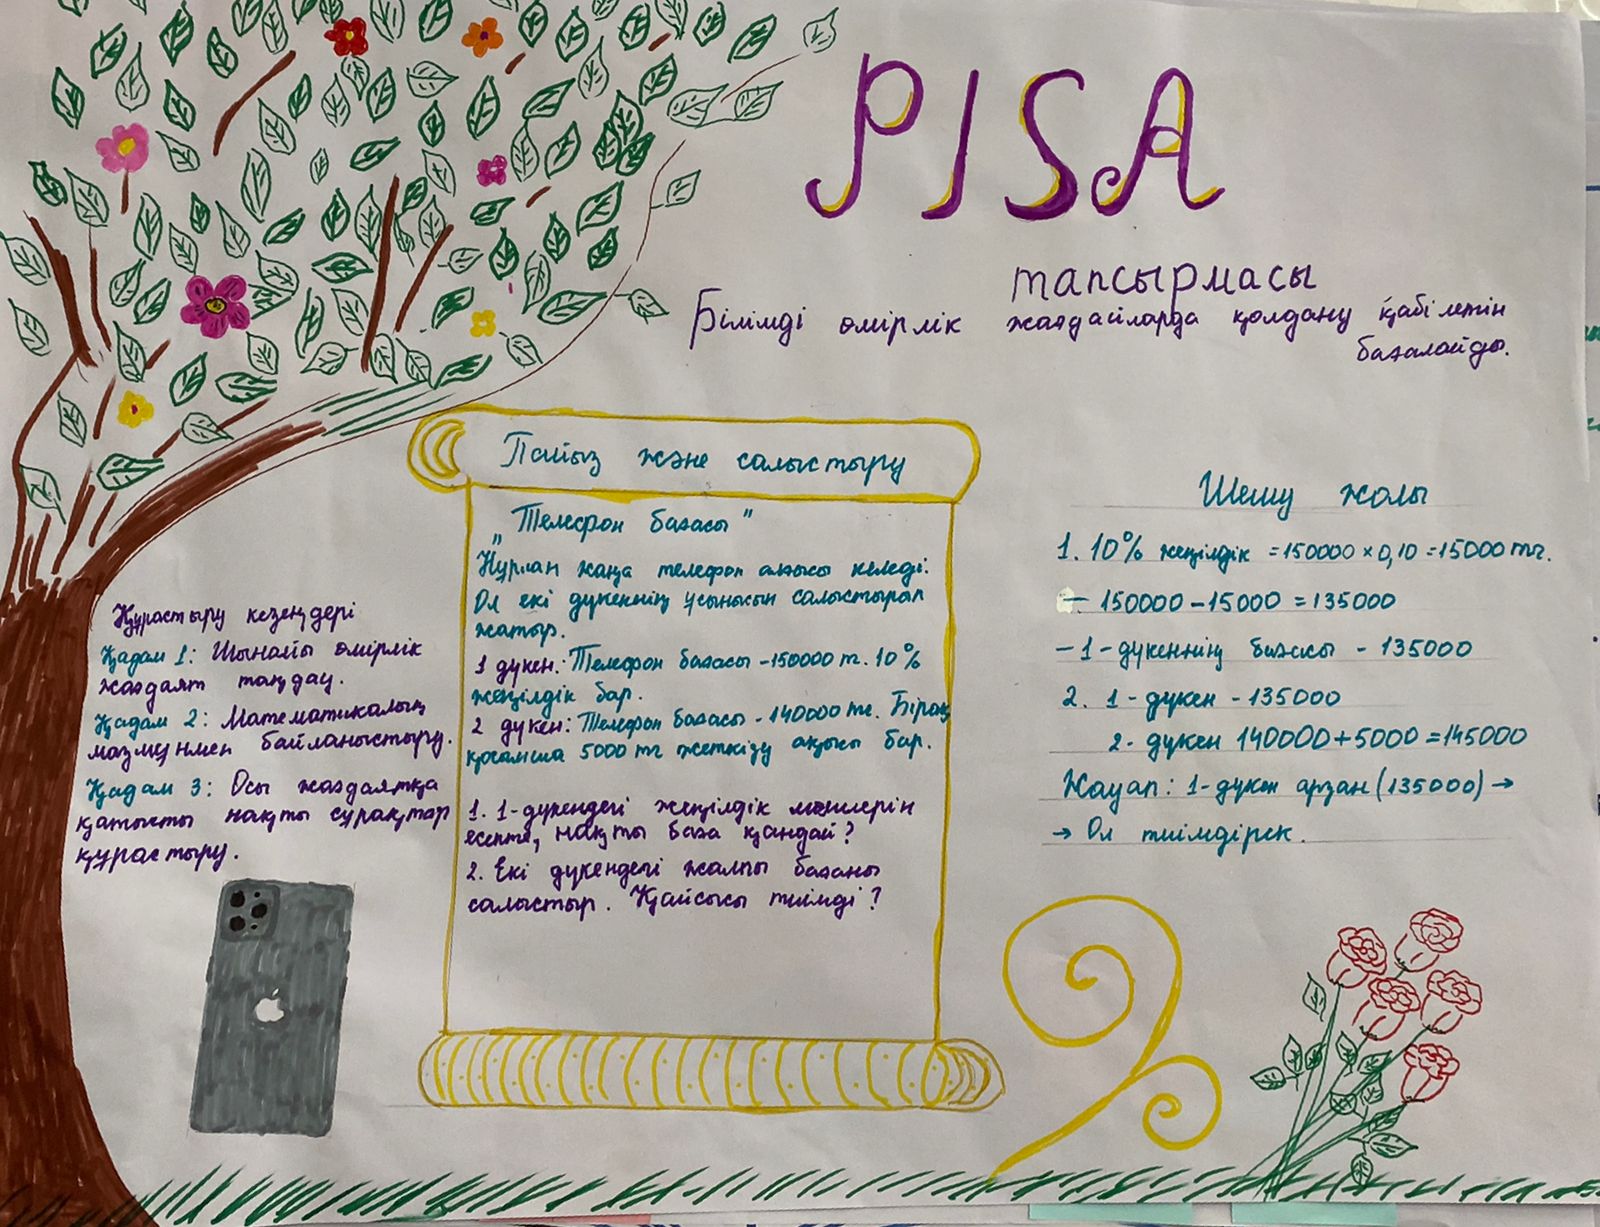 PISA
тапсырмасы
Білімді өмірлік жағдайларда қолдану қабілетін
бағалайды.
Пайыз және салыстыру
„Телефон бағасы"
Нұрлан жаңа телефон алғысы келеді.
Ол екі дүкеннің ұсынысын салыстырап
жатыр.
1 дүкен: Телефон бағасы -150000 т. 10%
жеңілдік бар.
2 дүкен: Телефон бағасы - 140000 тг. Бірақ
қосымша 5000 тг жеткізу ақысы бар.
1. 1-дүкендегі жеңілдік мөлшерін
есепте, нақты баға қандай?
2. Екі дүкендегі жалпы бағаны
салыстыр. Қайсысы тиімді?
Құрастыру кезеңдері
Қадам 1: Шынайы өмірлік
жағдаят таңдау.
Қадам 2: Математикалық
мазмұнмен байланыстыру.
Қадам 3: Осы жағдаятқа
қатысты нақты сұрақтар
құрастыру.
Шешу жолы
1. 10% жеңілдік =150000×0,10=15000тг.
- 150000-15000=135000
-1-дүкеннің бағасы - 135000
2. 1- дүкен -135000
2- дүкен 140000+5000=145000
Жауап: 1-дүкен арзан (135000)→
→ Ол тиімдірек.